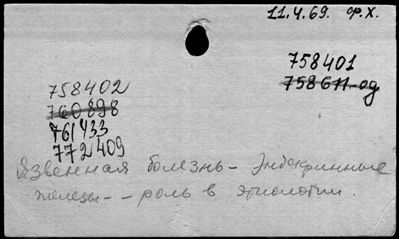 11.4.69. Ф.Х.
758401
758611-од
758402
760898
761433
772409
Язвенная болезнь - Эндокринные
железы - - роль в этиологии.